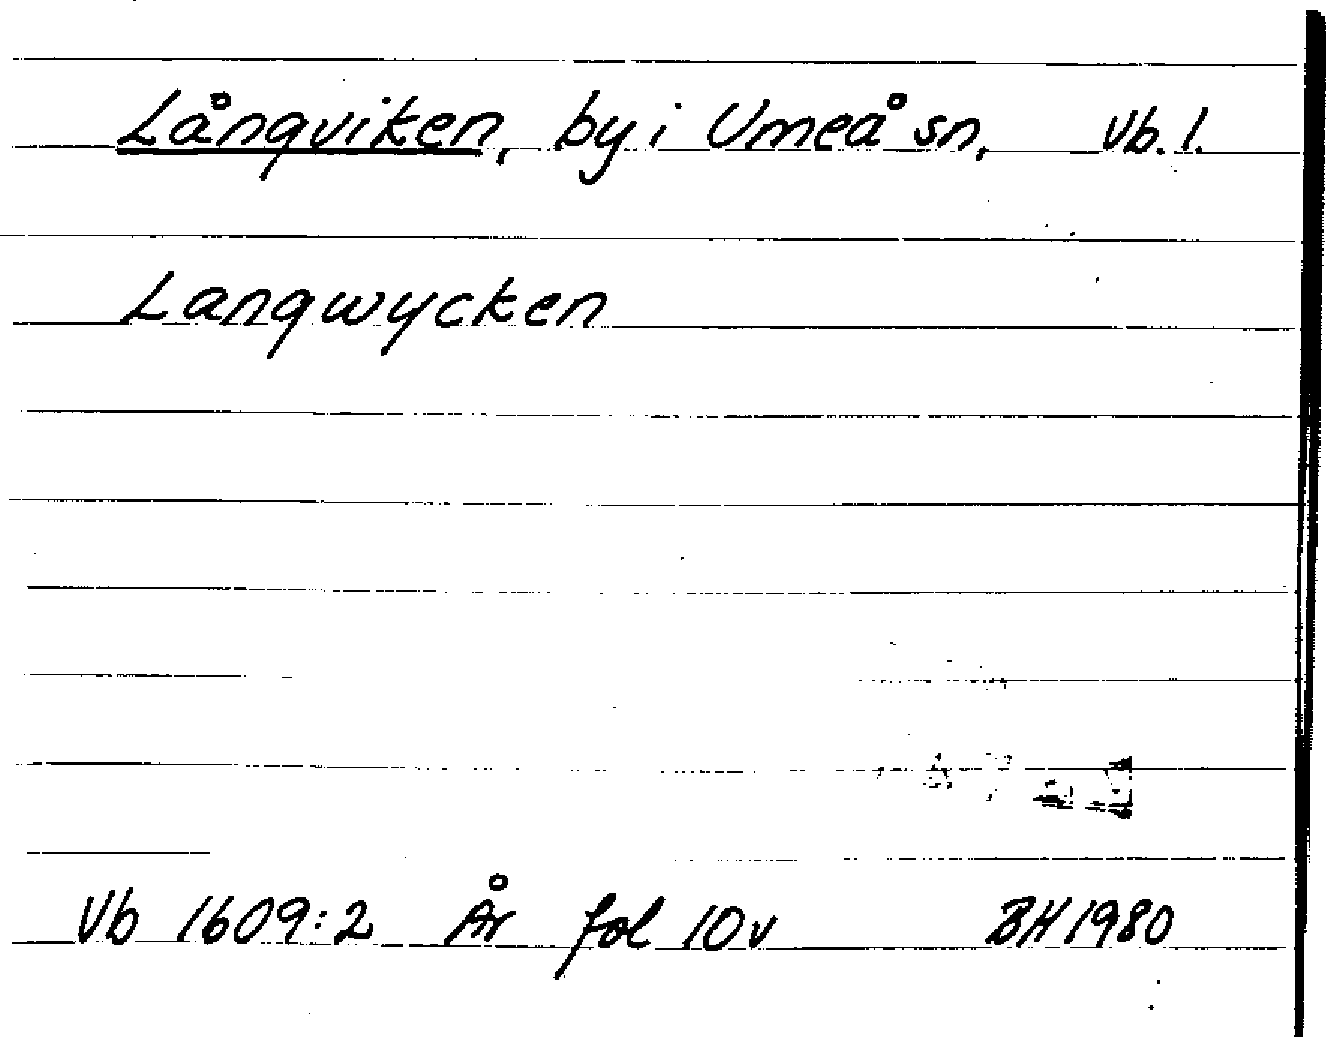 Långviken, by i Umeå sn, Vb. l.
Langwycken
Vb 1609:2 År fol 10v BH 1980